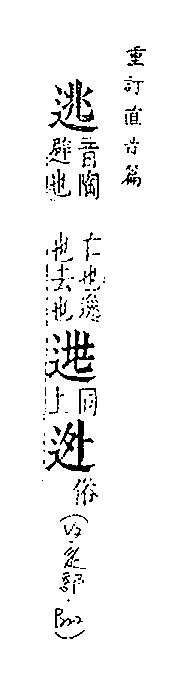 重訂直音篇
逃音陶避也 亡也逸也去也
同上
迯俗(V2.辵部.P222)